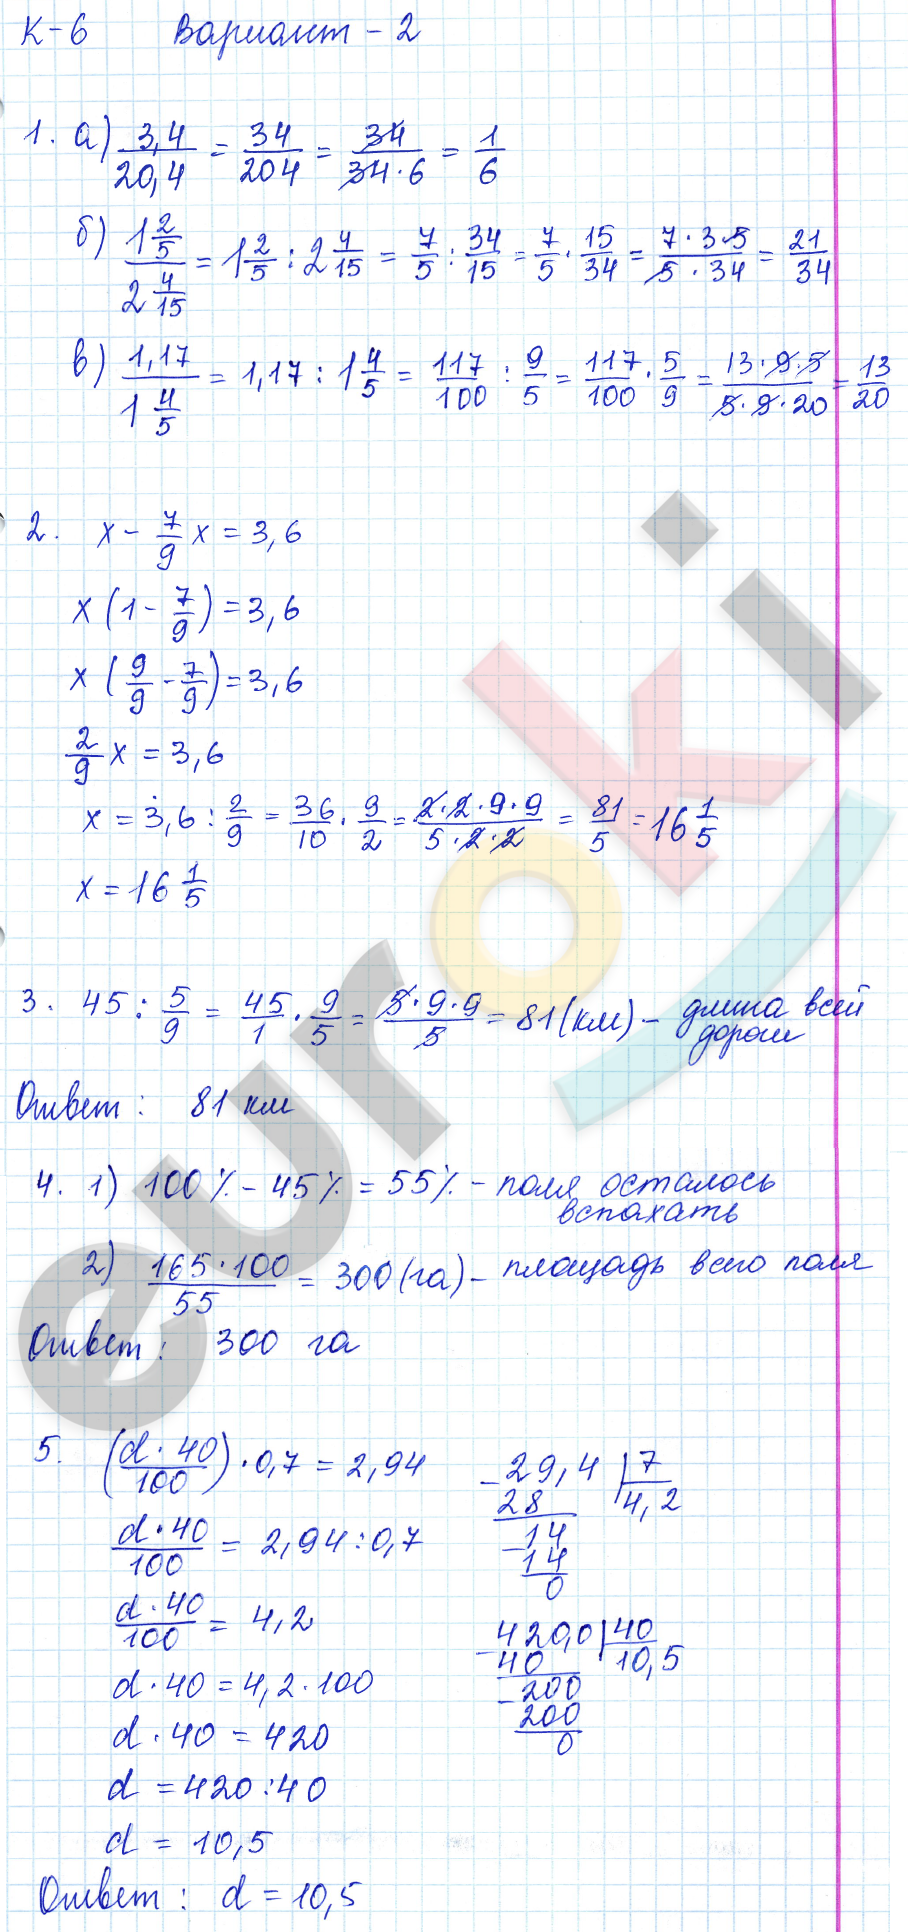 К-6 Вариант - 2
1. а) 3,4/20,4 = 34/204 = 34/34·6 = 1/6
б) 1 2/5 / 2 4/15 = 1 2/5 : 2 4/15 = 7/5 : 34/15 = 7/5 · 15/34 = 7·3·5/5·34 = 21/34
в) 1,17 / 1 4/5 = 1,17 : 1 4/5 = 117/100 : 9/5 = 117/100 · 5/9 = 13·9·5/5·9·20 = 13/20
2. x - 7/9 x = 3,6
x (1 - 7/9) = 3,6
x (9/9 - 7/9) = 3,6
2/9 x = 3,6
x = 3,6 : 2/9 = 36/10 · 9/2 = 2·2·9·9/5·2·2 = 81/5 = 16 1/5
x = 16 1/5
3. 45 : 5/9 = 45/1 · 9/5 = 5·9·9/5 = 81 (км) - длина всей
дороги
Ответ: 81 км
4. 1) 100% - 45% = 55% - поля осталось
вспахать
2) 165·100/55 = 300 (га) - площадь всего поля
Ответ: 300 га
5. (d·40/100) · 0,7 = 2,94
d·40/100 = 2,94 : 0,7
d·40/100 = 4,2
d·40 = 4,2·100
d·40 = 420
d = 420:40
d = 10,5
Ответ: d = 10,5
- 29,4 | 7
28 4,2
- 14
14
0
- 420,0 | 40
40 10,5
- 200
200
0
euroki